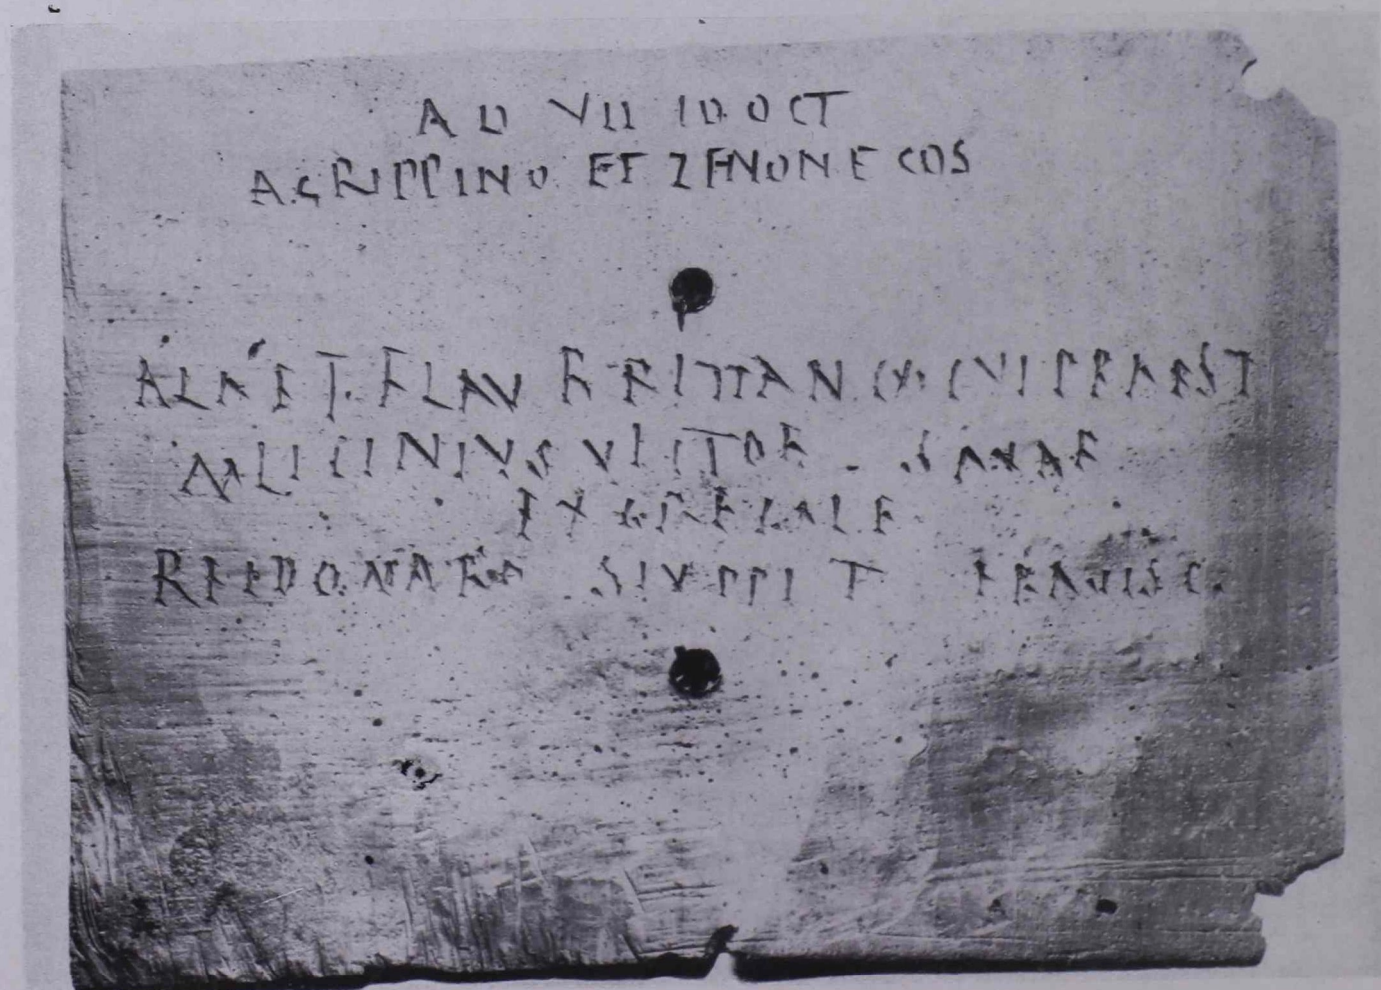 A D VII ID OCT
AGRIPPINO ET ZENONE COS
ALAE I FLAV BRITTAN ∞ CVI PRAEST
M LICINIVS VICTOR SAVAR
EX GREGALE
SIVPPI F ERAVISC